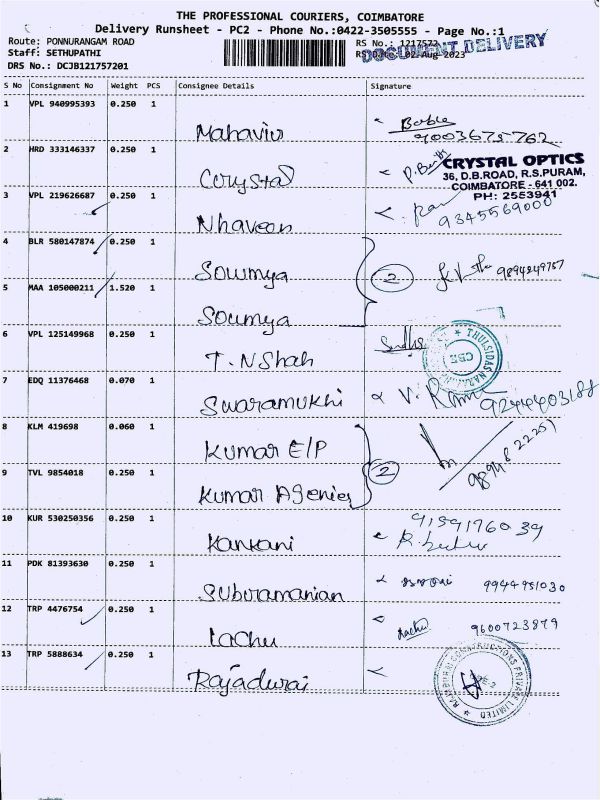 THE PROFESSIONAL COURIERS, COIMBATORE
Delivery Runsheet - PC2 - Phone No.:0422-3505555 - Page No.:1
Route: PONNURANGAM ROAD
RS No.: 1217572
DOCUMENT DELIVERY
Staff: SETHUPATHI
RS Date: 02-Aug-2023
DRS No.: DCJB121757201
S No Consignment No Weight PCS Consignee Details Signature
1 VPL 940995393 0.250 1
Mahaviv 9003675762
2 HRD 333146337 0.250 1
CRYSTAL OPTICS
36, D.B.ROAD, R.S.PURAM,
COIMBATORE - 641 002.
PH: 2553941
Corystal
3 VPL 219626687 0.250 1
9345569000
Nhaveen
4 BLR 580147874 0.250 1
Soumya 2 9894849757
5 MAA 105000211 1.520 1
Soumya
6 VPL 125149968 0.250 1
T.N Shah
THULSIDAS
CBE
7 EDQ 11376468 0.070 1
Swaramukhi
8 KLM 419698 0.060 1
Kumar E/P
2
9 TVL 9854018 0.250 1
Kumar Agenies
10 KUR 530250356 0.250 1
Kankani
11 PDK 81393630 0.250 1
Suburamanian 9944951030
12 TRP 4476754 0.250 1
Lachu 9600723879
13 TRP 5888634 0.250 1
Rajadurai
PRIVATE LIMITED